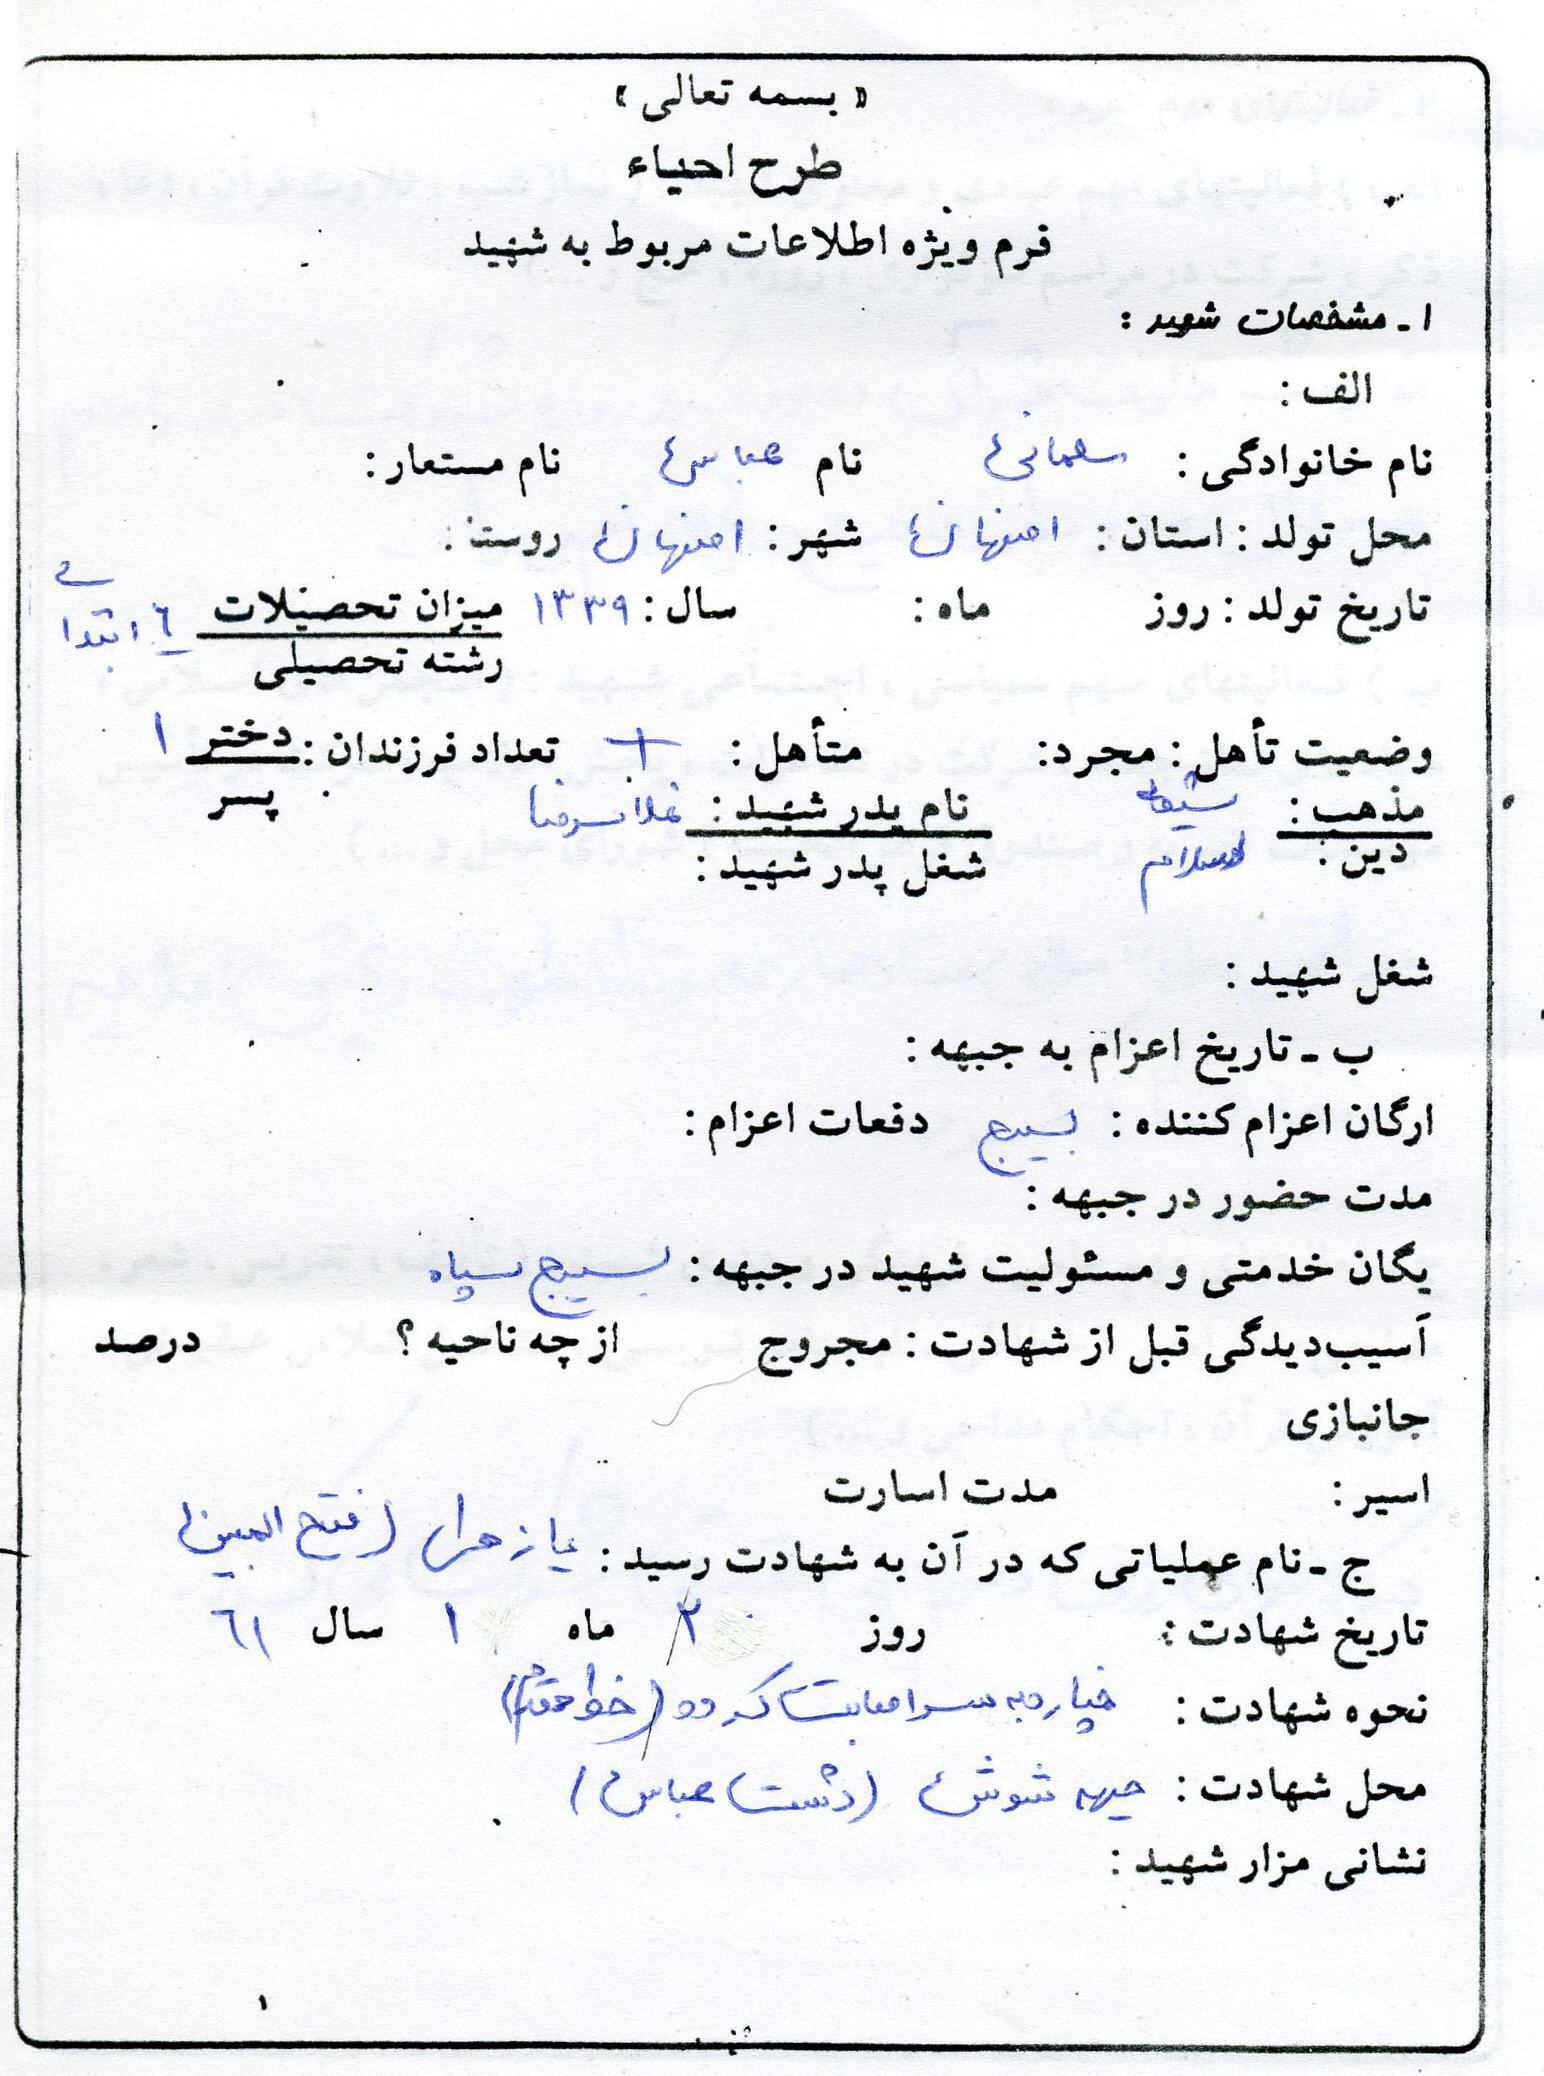 « بسمه تعالی »
طرح احیاء
فرم ویژه اطلاعات مربوط به شهید
۱ ـ مشخصات شهید :
الف :
نام خانوادگی : سلمانی نام عباس نام مستعار :
محل تولد : استان : اصفهان شهر : اصفهان روستا :
تاریخ تولد : روز ماه : سال : ۱۳۳۹ میزان تحصیلات ۶ ابتدائی
رشته تحصیلی
وضعیت تأهل : مجرد : متأهل : + تعداد فرزندان : دختر ۱
پسر
مذهب : شیعه نام پدر شهید : غلامرضا
دین : اسلام شغل پدر شهید :
شغل شهید :
ب ـ تاریخ اعزام به جبهه :
ارگان اعزام کننده : بسیج دفعات اعزام :
مدت حضور در جبهه :
یگان خدمتی و مسئولیت شهید در جبهه : بسیج سپاه
آسیب‌دیدگی قبل از شهادت : مجروح از چه ناحیه ؟ درصد
جانبازی
اسیر : مدت اسارت
ج ـ نام عملیاتی که در آن به شهادت رسید : یا زهرا (فتح المبین)
تاریخ شهادت : روز ۲ ماه ۱ سال ۶۱
نحوه شهادت : خپاره به سر اصابت کرده (خط مقدم)
محل شهادت : جبهه شوش (دشت عباس)
نشانی مزار شهید :
۱